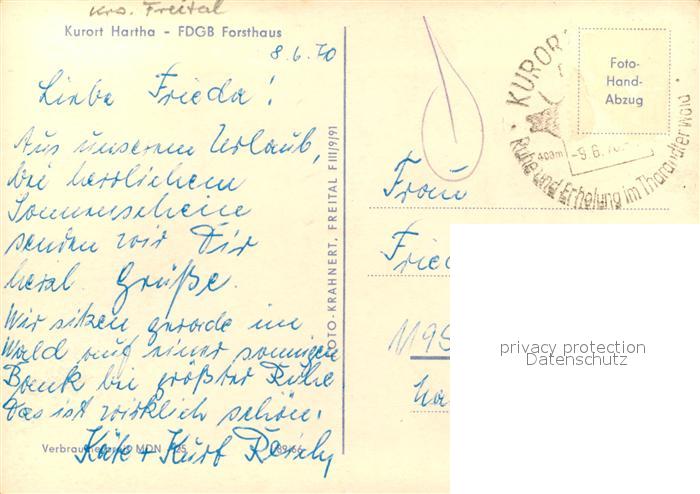 Krs. Freital
Kurort Hartha - FDGB Forsthaus
8.6.70
Liebe Frieda!
Aus unserem Urlaub,
bei herrlichem
Sonnenschein
senden wir Dir
herzl. Grüße.
Wir sitzen gerade im
Wald auf einer sonnigen
Bank bei größter Ruhe
das ist wirklich schön.
Käte + Kurt
Verbraucherpreis MDN
FOTO-KRAHNERT, FREITAL F III/9/91
KURORT
400m
-9.6.70
Ruhe und Erholung im Tharandter Wald
Foto-
Hand-
Abzug
Frau
Fried
M95
privacy protection
Datenschutz